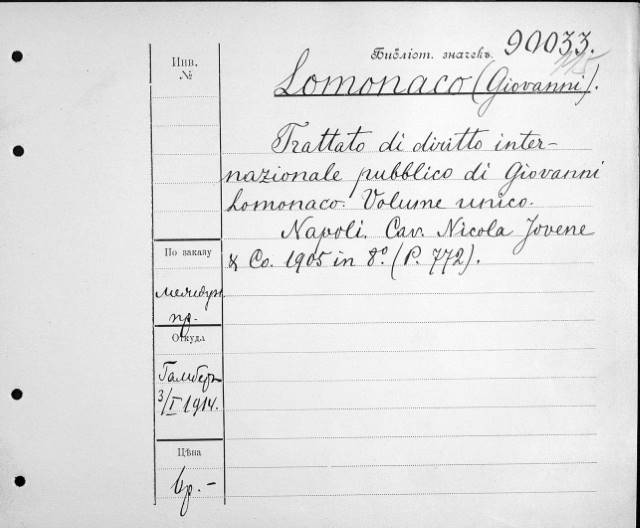 Инв.
№
Библіот. значекъ. 90033.
Lomonaco (Giovanni).
Trattato di diritto inter-
nazionale pubblico di Giovanni
Lomonaco. Volume unico.
Napoli. Cav. Nicola Jovene
& Co. 1905 in 8º. (P. 772).
По заказу
пр.
Откуда
3/I 1914.
Цѣна
р. -